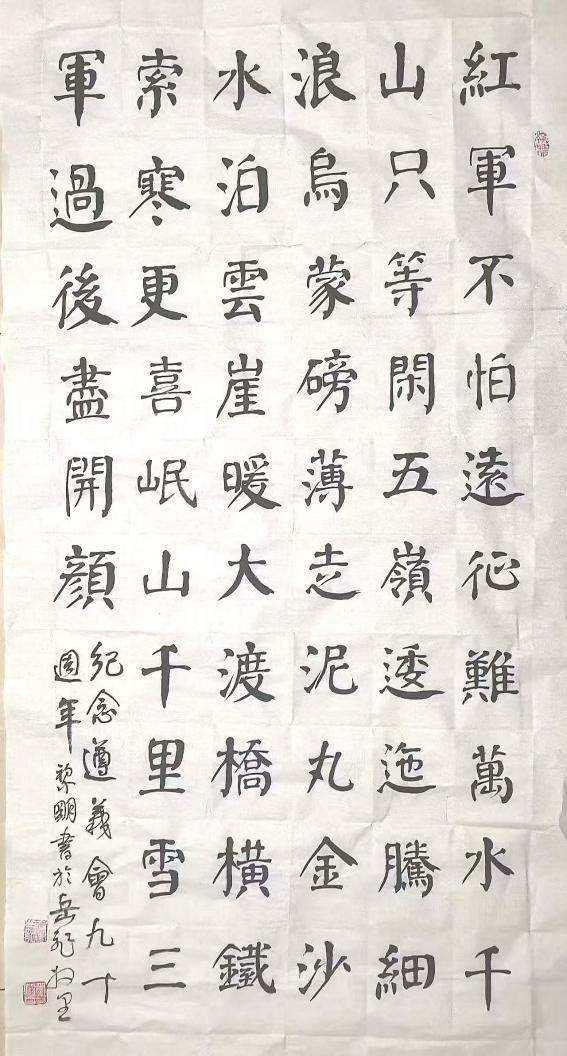 紅軍不怕遠征難萬水千
山只等閑五嶺逶迤騰細
浪烏蒙磅薄走泥丸金沙
水泊雲崖暖大渡橋橫鐵
索寒更喜岷山千里雪三
軍過後盡開顏
紀念遵義會九十
週年黎明書於岳